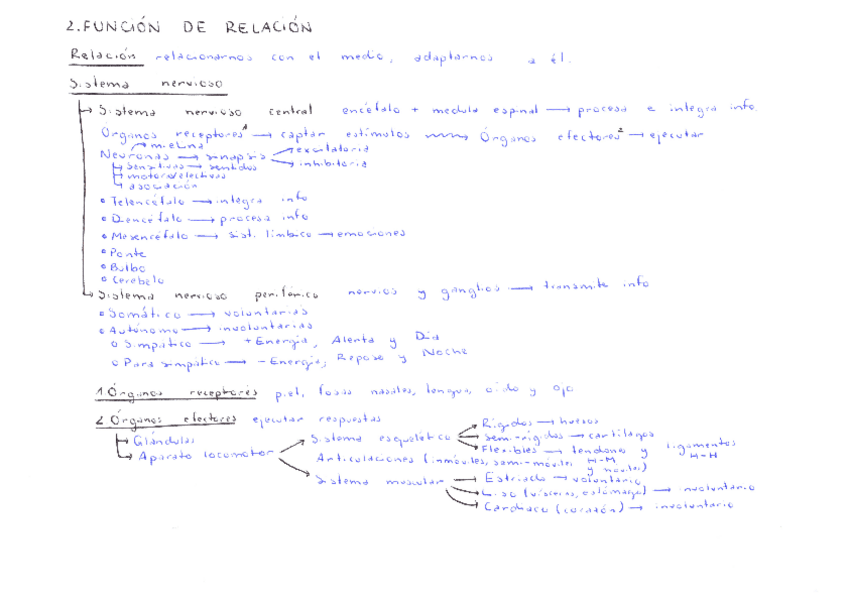 2. FUNCIÓN DE RELACIÓN
Relación relacionarnos con el medio, adaptarnos a él.
Sistema nervioso
Sistema nervioso central encéfalo + medula espinal → procesa e integra info.
Órganos receptores¹ → captar estímulos → Órganos efectores² → ejecutar
→ mielina
Neuronas → sinapsis → excitatoria
→ inhibitoria
→ sensitivas → sentidos
→ motoras/efectivas
→ asociación
• Telencéfalo → integra info
• Diencéfalo → procesa info
• Mesencéfalo → Sist. límbico → emociones
• Ponte
• Bulbo
• Cerebelo
Sistema nervioso periférico nervios y ganglios → transmite info
• Somático → voluntarias
• Autónomo → involuntarias
o Simpático → + Energía, Alerta y Día
o Parasimpático → - Energía, Reposo y Noche
1 Órganos receptores piel, fosas nasales, lengua, oído y ojo
2 Órganos efectores ejecutar respuestas
→ Glándulas
→ Aparato locomotor → Sistema esquelético → Rígidos → huesos
→ Semi-rígidos → cartílagos
→ Flexibles → tendones y ligamentos
H-M H-H
Articulaciones (inmóviles, semi-móviles y móviles)
→ Sistema muscular → Estriado → voluntario
→ Liso (vísceras, estómago) → involuntario
→ Cardiaco (corazón) → involuntario